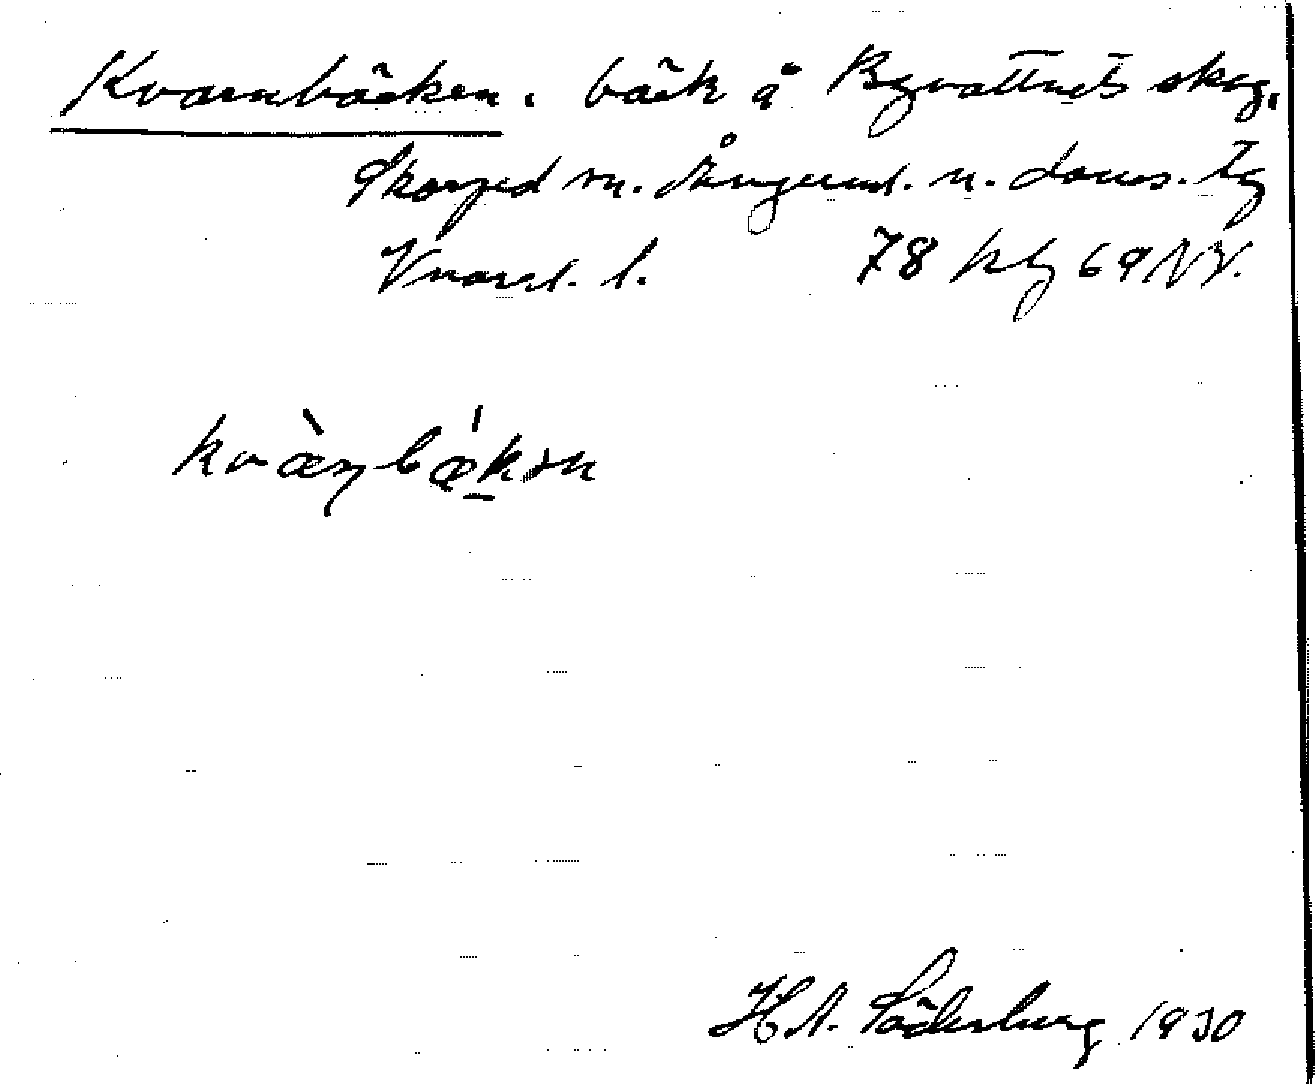 Kvarnbäcken, bäck å Byvattnets skog,
Skorped sn. Ångerml. n. doms. tg
Västernorrl. l. 78 kbl 69 NV.
kvànbǽkən
H.A. Söderberg 1930